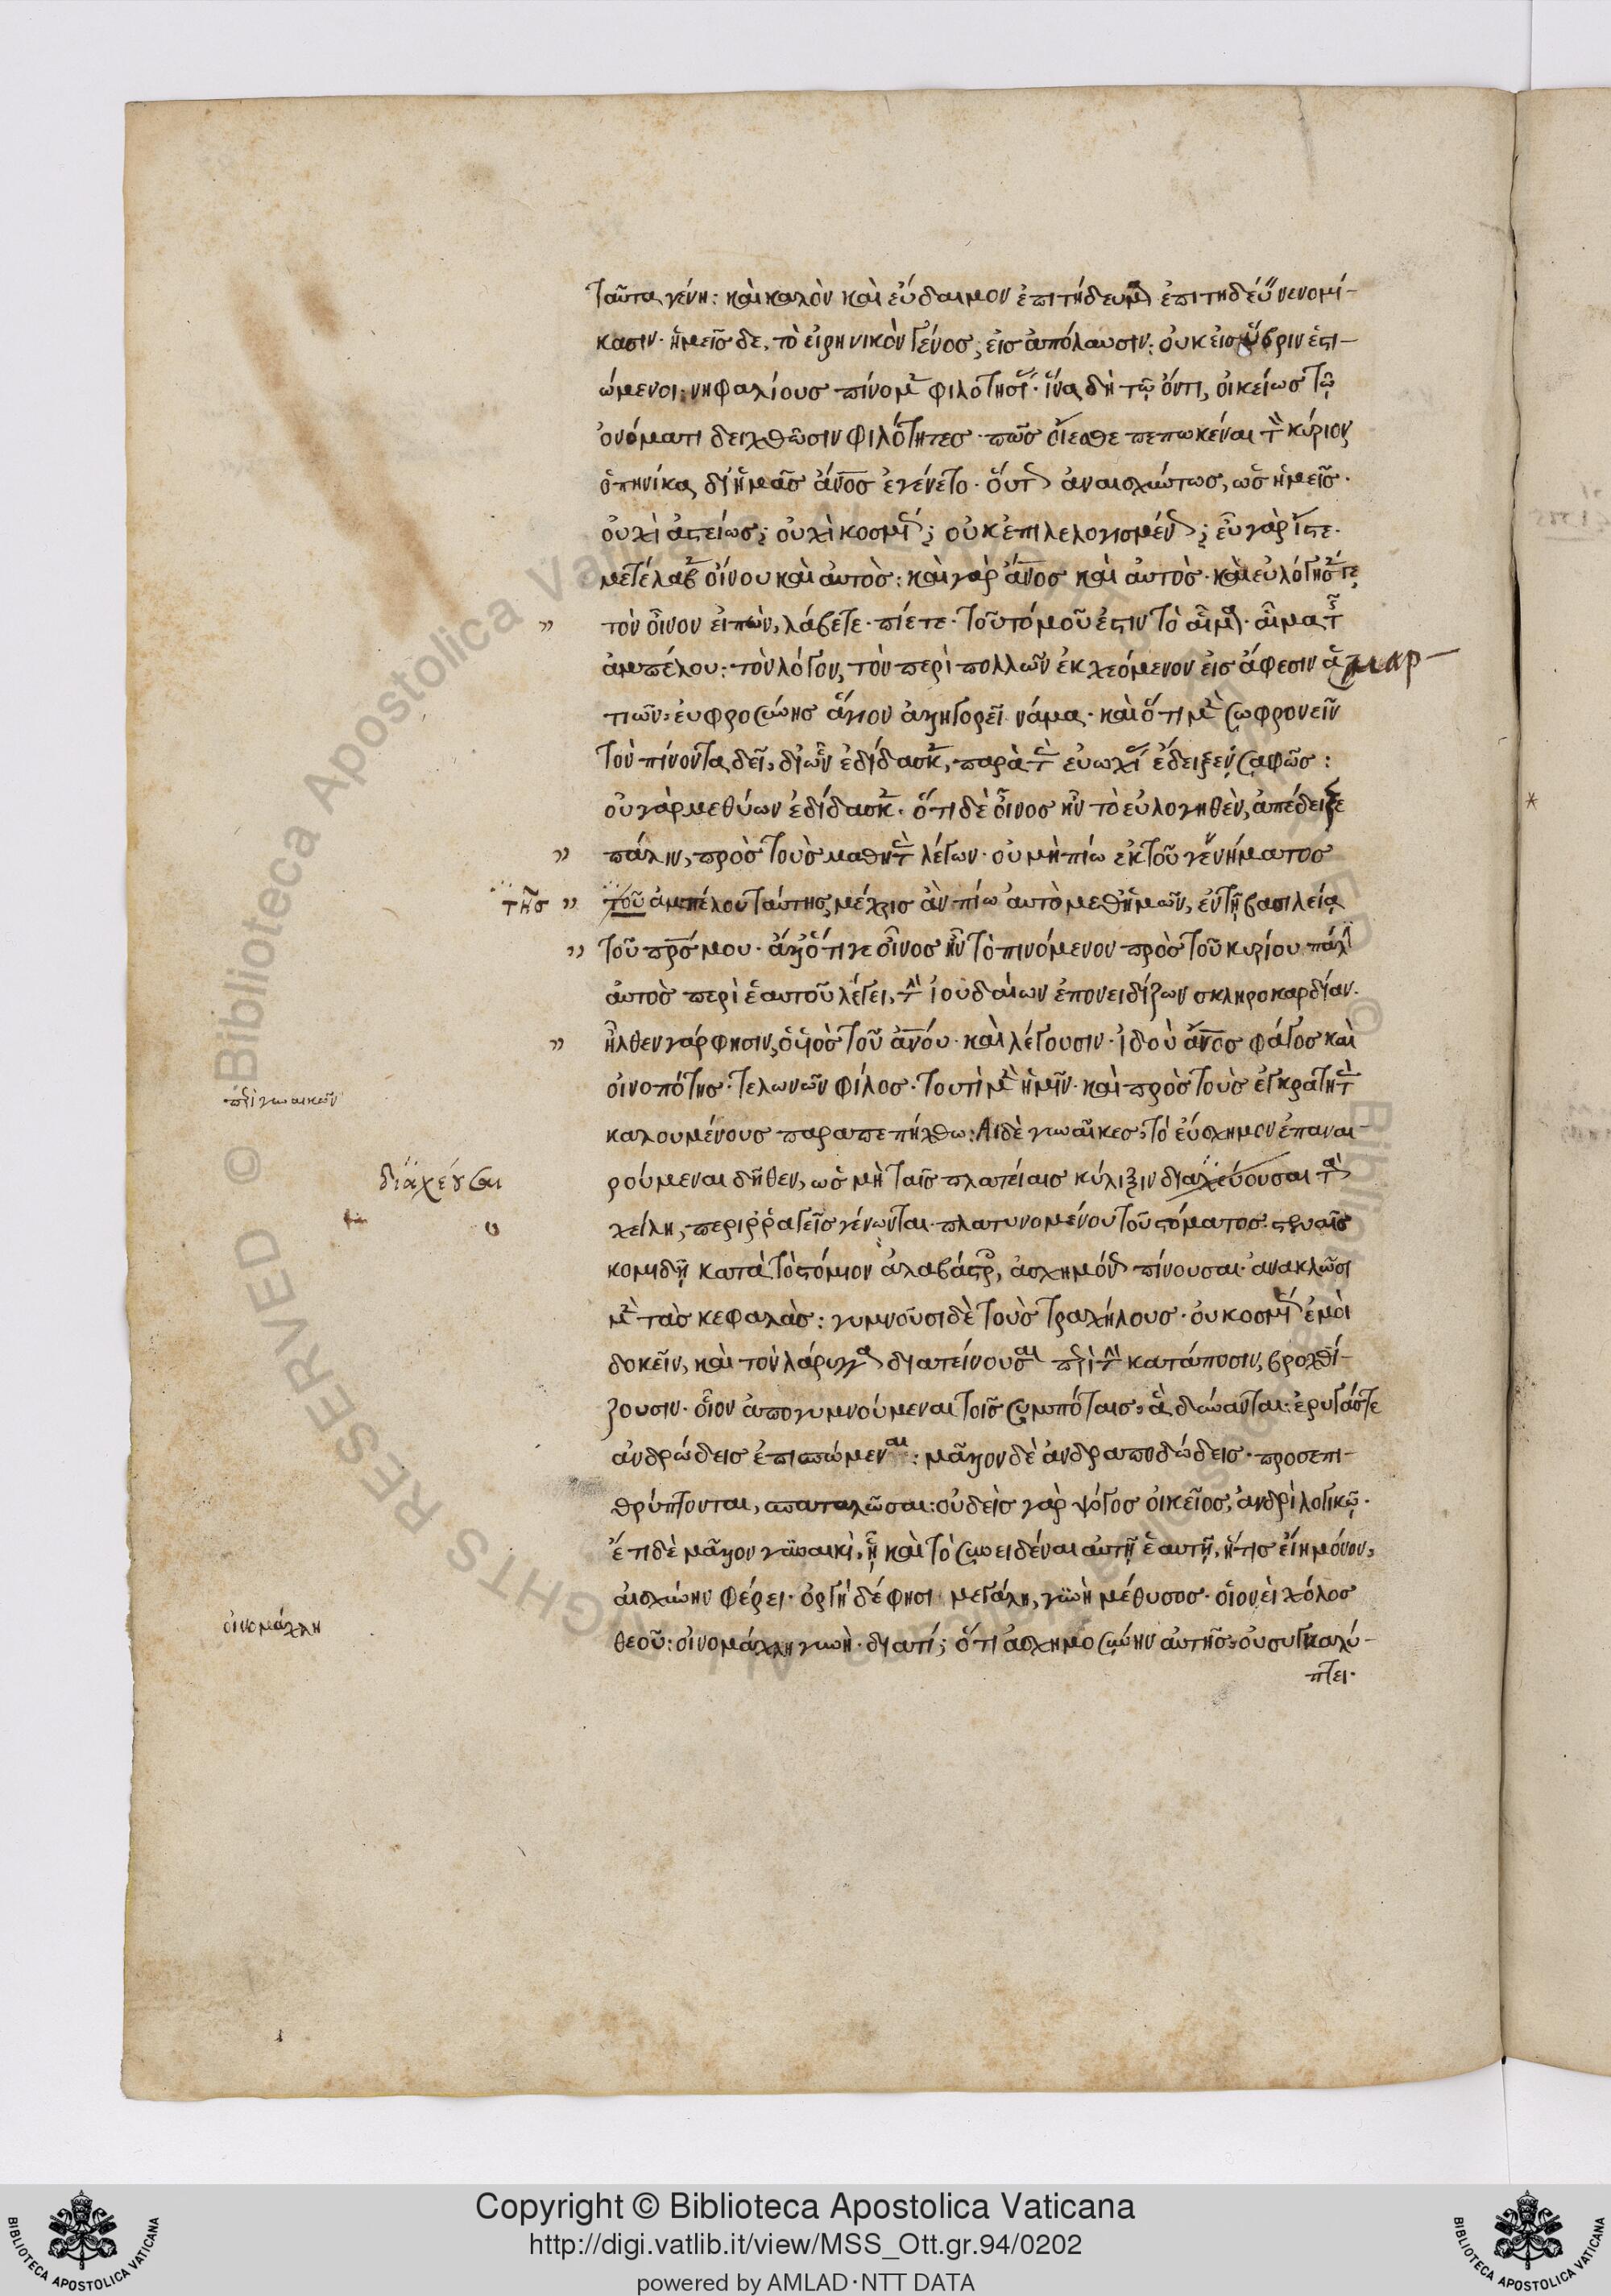 ταῦτα γένη: καὶ καλὸν καὶ εὐδαιμον ἐπιτήδευμα ἐπιτηδεύειν νενομί-
κασιν· ἡμεῖς δε, τὸ εἰρηνικὸν γένος, εἰς ἀπόλαυσιν: οὐκ εἰς ὕβριν ἑστι-
ώμενοι: νηφαλίους πίνομεν φιλοτησίας· ἵνα δὴ τῷ ὄντι, οἰκείως τῷ
ὀνόματι δειχθῶσιν φιλότητες· πῶς οἴεσθε πεπωκέναι τὸν κύριον
ὁπηνίκα δι' ἡμᾶς ἄνος ἐγένετο· οὕτως ἀναισχύντως, ὡς ἡμεῖς·
οὐχὶ ἀστείως; οὐχὶ κοσμίως; οὐκ ἐπιλελογισμένως; εὖ γὰρ ἴστε·
μετέλαβεν οἴνου καὶ αὐτὸς: καὶ γὰρ ἄνος καὶ αὐτὸς· καὶ εὐλόγησέν γε
" τὸν οἶνον εἰπὼν, λάβετε· πίετε· τοῦτό μοῦ ἐστιν τὸ αἷμα· αἷμα τῆς
ἀμπέλου: τὸν λόγον, τὸν περὶ πολλῶν ἐκχεόμενον εἰς ἄφεσιν ἁμαρ-
τιῶν: εὐφροσύνης ἅγιον ἀλληγορεῖ νάμα· καὶ ὅτι μὲν σωφρονεῖν
τὸν πίνοντα δεῖ, δι' ὧν ἐδίδασκεν, παρὰ τὰς εὐωχίας ἔδειξεν σαφῶς:
οὐ γὰρ μεθύων ἐδίδασκεν· ὅτι δὲ οἶνος ἦν τὸ εὐλογηθὲν, ἀπέδειξε
" πάλιν, πρὸς τοὺς μαθητὰς λέγων· οὐ μὴ πίω ἐκ τοῦ γεννήματος
τῆς " τοῦ ἀμπέλου ταύτης, μέχρις ἂν πίω αὐτὸ μεθ' ἡμῶν, ἐν τῇ βασιλείᾳ
" τοῦ πρς μου· ἀλλ' ὅτι γε οἶνος ἦν τὸ πινόμενον πρὸς τοῦ κυρίου πάλιν
αὐτὸς περὶ ἑαυτοῦ λέγει, τὴν ἰουδαίων ἐπονειδίζων σκληροκαρδίαν·
" ἦλθεν γάρ φησιν, ὁ ὑιὸς τοῦ ἀνου· καὶ λέγουσιν· ἰδοὺ ἄνος φάγος καὶ
οἰνοπότης· τελωνῶν φίλος· τουτὶ μὲν ἡμῖν· καὶ πρὸς τοὺς ἐγκρατητὰς
περὶ γυναικῶν
καλουμένους παραπεπήχθω: Αἱ δὲ γυναῖκες, τὸ εὔσχημον ἐπαναι-
διαχέουσαι
ρούμεναι δῆθεν, ὡς μὴ ταῖς πλατείαις κύλιξιν διαχεύουσαι τὰ
χείλη, περιρραγεῖς γένωνται πλατυνομένου τοῦ στόματος· στενοῖς
κομιδῇ κατὰ τὸ στόμιον ἀλαβάστροις, ἀσχημόνως πίνουσαι· ἀνακλῶσι
μὲν τὰς κεφαλὰς: γυμνοῦσι δὲ τοὺς τραχήλους· οὐ κοσμίως ἐμοὶ
δοκεῖν, καὶ τὸν λάρυγγα διατείνουσαι περὶ τὴν κατάποσιν, βροχθί-
ζουσιν· οἷον ἀπογυμνούμεναι τοῖς συμπόταις, ἃ δύνανται· ἐρυγάς τε
ἀνδρώδεις ἐπισπώμεναι: μᾶλλον δὲ ἀνδραποδώδεις· προσεπι-
θρύπτονται, σπαταλῶσαι: οὐδεὶς γὰρ ψόγος οἰκεῖος, ἀνδρὶ λογικῷ·
ἔτι δὲ μᾶλλον γυναικὶ, ᾗ καὶ τὸ συνειδέναι αὐτῇ ἑαυτῇ, ἥτις εἴη μόνον,
αἰσχύνην φέρει· ὀργὴ δέ φησι μεγάλη, γυνὴ μέθυσος· οἱονεὶ χόλος
οἰνομάχλη
θεοῦ: οἰνομάχλη γυνὴ· διατί; ὅτι ἀσχημοσύνην αὐτῆς, οὐ συγκαλύ-
πτει·
Copyright © Biblioteca Apostolica Vaticana
http://digi.vatlib.it/view/MSS_Ott.gr.94/0202
powered by AMLAD·NTT DATA
BIBLIOTECA APOSTOLICA VATICANA
BIBLIOTECA APOSTOLICA VATICANA